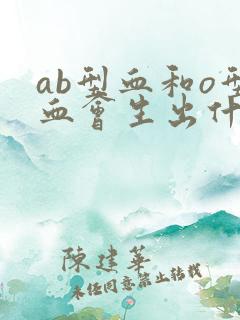 ab型血和o型
血会生出什
陳建華
未经同意禁止转载